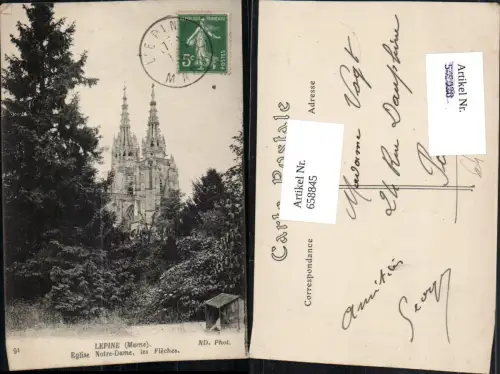 L'EPINE
MARNE
REPUBLIQUE FRANÇAISE
5c
POSTES
91
LEPINE (Marne).
Eglise Notre-Dame, les Flèches.
ND. Phot.
Carte Postale
Correspondance
Adresse
Artikel Nr.
658845
Artikel Nr.
Madame Vogt
24 Rue Dauphine
Amitiés